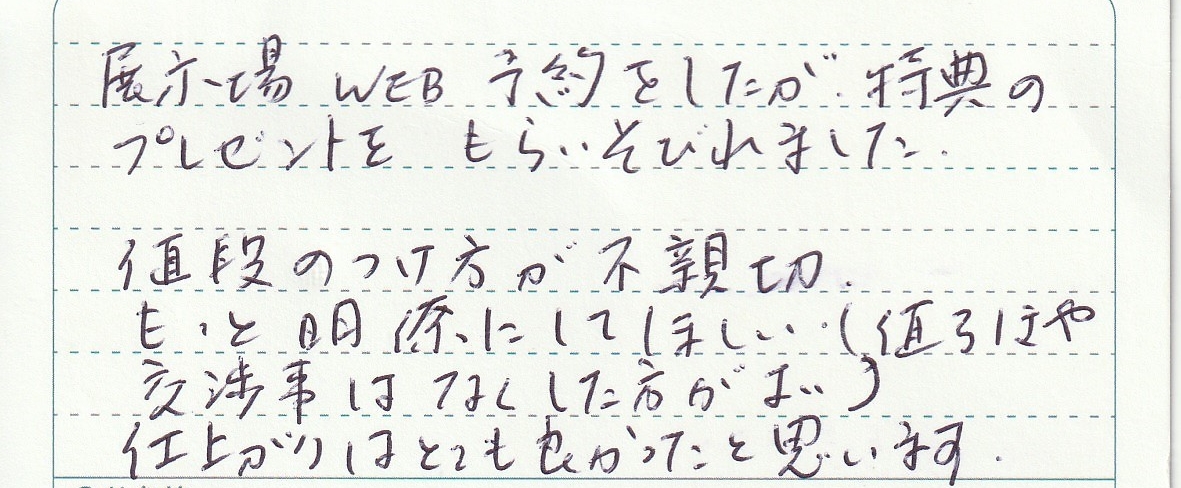 展示場 WEB 予約をしたが、特典の
プレゼントを もらいそびれました.
値段のつけ方が不親切.
もっと明僚にしてほしい.(値引や
交渉事はなくした方がよい)
仕上がりはとても良かったと思います.